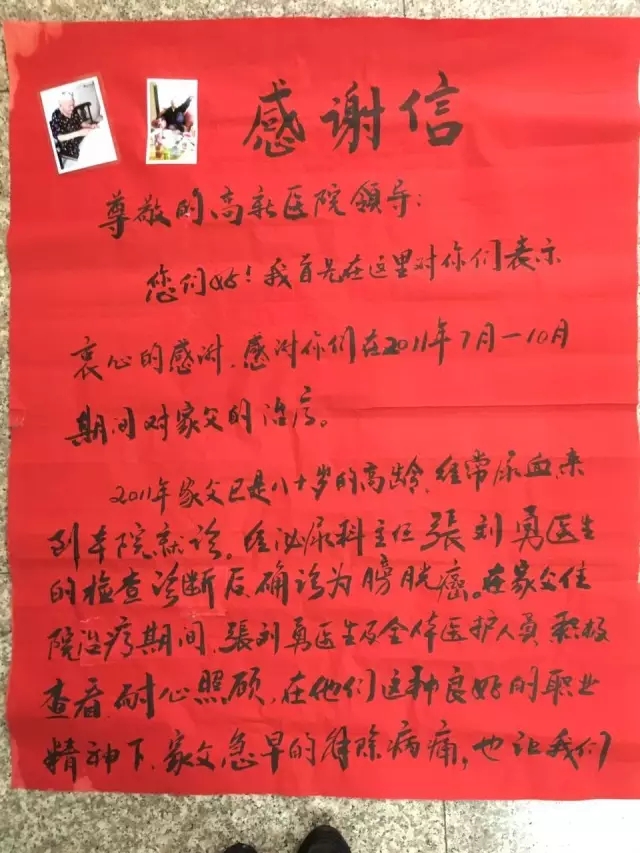 感谢信
尊敬的高新医院领导：
您们好！我首先在这里对你们表示
衷心的感谢，感谢你们在2011年7月一10月
期间对家父的治疗。
2011年家父已是八十岁的高龄，经常尿血，来
到本院就诊。经泌尿科主任張刘勇医生
的检查诊断后，确诊为膀胱癌。在家父住
院治疗期间，張刘勇医生及全体医护人员积极
查看，耐心照顾，在他们这种良好的职业
精神下，家父急早的解除病痛，也让我们